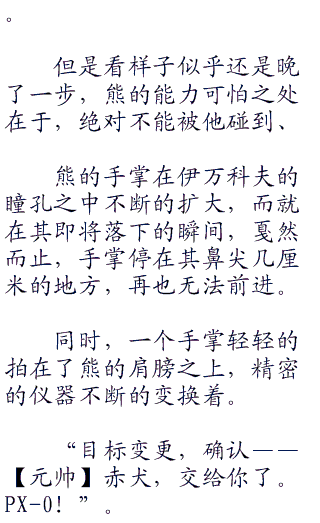 。
但是看样子似乎还是晚
了一步，熊的能力可怕之处
在于，绝对不能被他碰到、
熊的手掌在伊万科夫的
瞳孔之中不断的扩大，而就
在其即将落下的瞬间，戛然
而止，手掌停在其鼻尖几厘
米的地方，再也无法前进。
同时，一个手掌轻轻的
拍在了熊的肩膀之上，精密
的仪器不断的变换着。
“目标变更，确认——
【元帅】赤犬，交给你了。
PX-0！”。